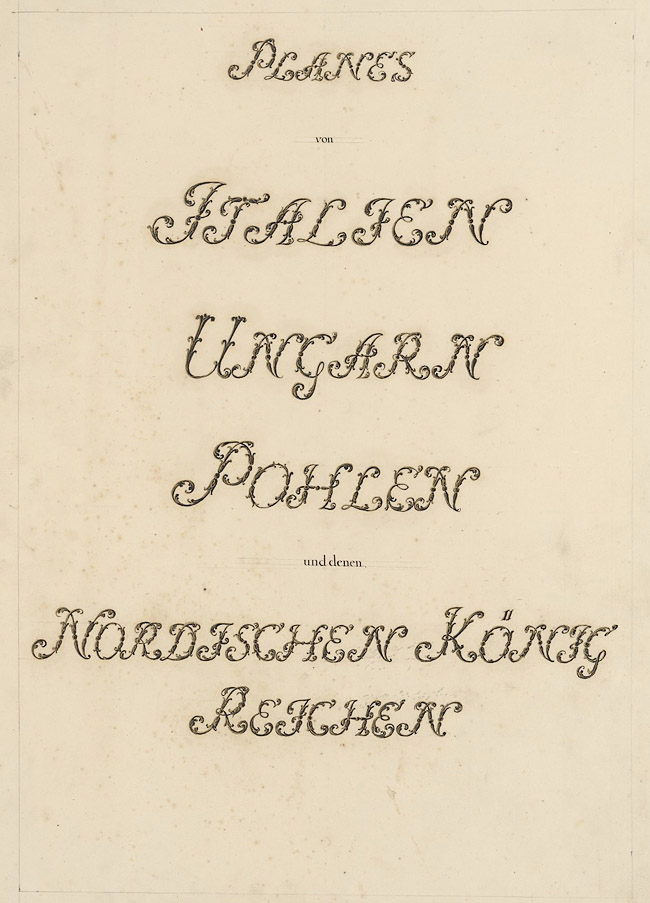 PLANES
von
ITALIEN
UNGARN
POHLEN
und denen.
NORDISCHEN KÖNIG
REICHEN